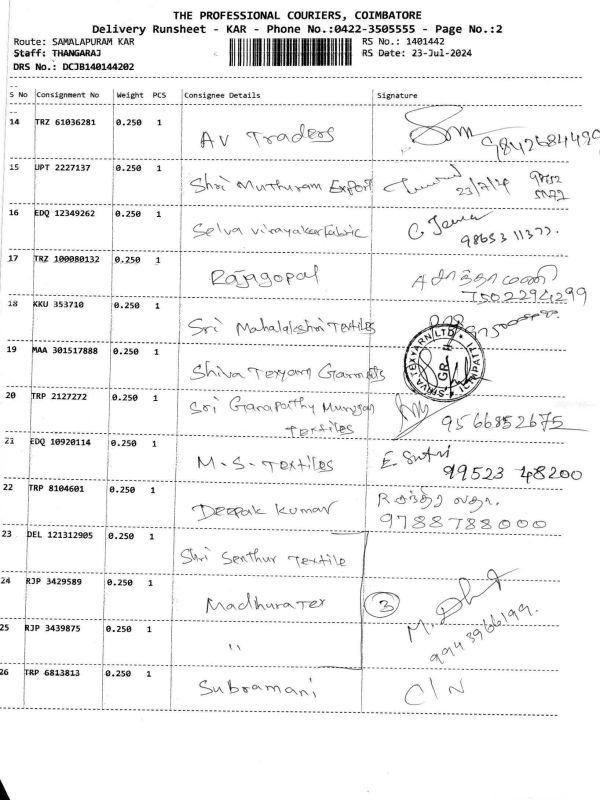 THE PROFESSIONAL COURIERS, COIMBATORE
Delivery Runsheet - KAR - Phone No.:0422-3505555 - Page No.:2
Route: SAMALAPURAM KAR RS No.: 1401442
Staff: THANGARAJ RS Date: 23-Jul-2024
DRS No.: DCJB140144202
S No Consignment No Weight PCS Consignee Details Signature
14 TRZ 61036281 0.250 1 AV Traders 9842684499
15 UPT 2227137 0.250 1 Shri Muthuram Export 23/7/24
16 EDQ 12349262 0.250 1 Selva Virayaker Fabric 98653 11377.
17 TRZ 100080132 0.250 1 Rajagopal
7502294299
18 KKU 353710 0.250 1 Sri Mahalakshri Textiles
19 MAA 301517888 0.250 1 Shiva Texyarn Garments SHIVA TEXYARN LTD
20 TRP 2127272 0.250 1 Sri Ganapathy Murugan
Textiles 9566852675
21 EDQ 10920114 0.250 1 M.S. Textiles
99523 48200
22 TRP 8104601 0.250 1 Deepak Kumar
9788788000
23 DEL 121312905 0.250 1 Shri Senthur Textile
24 RJP 3429589 0.250 1 Madhura Tex 3
25 RJP 3439875 0.250 1 " 9943966199.
26 TRP 6813813 0.250 1 Subramani C/N